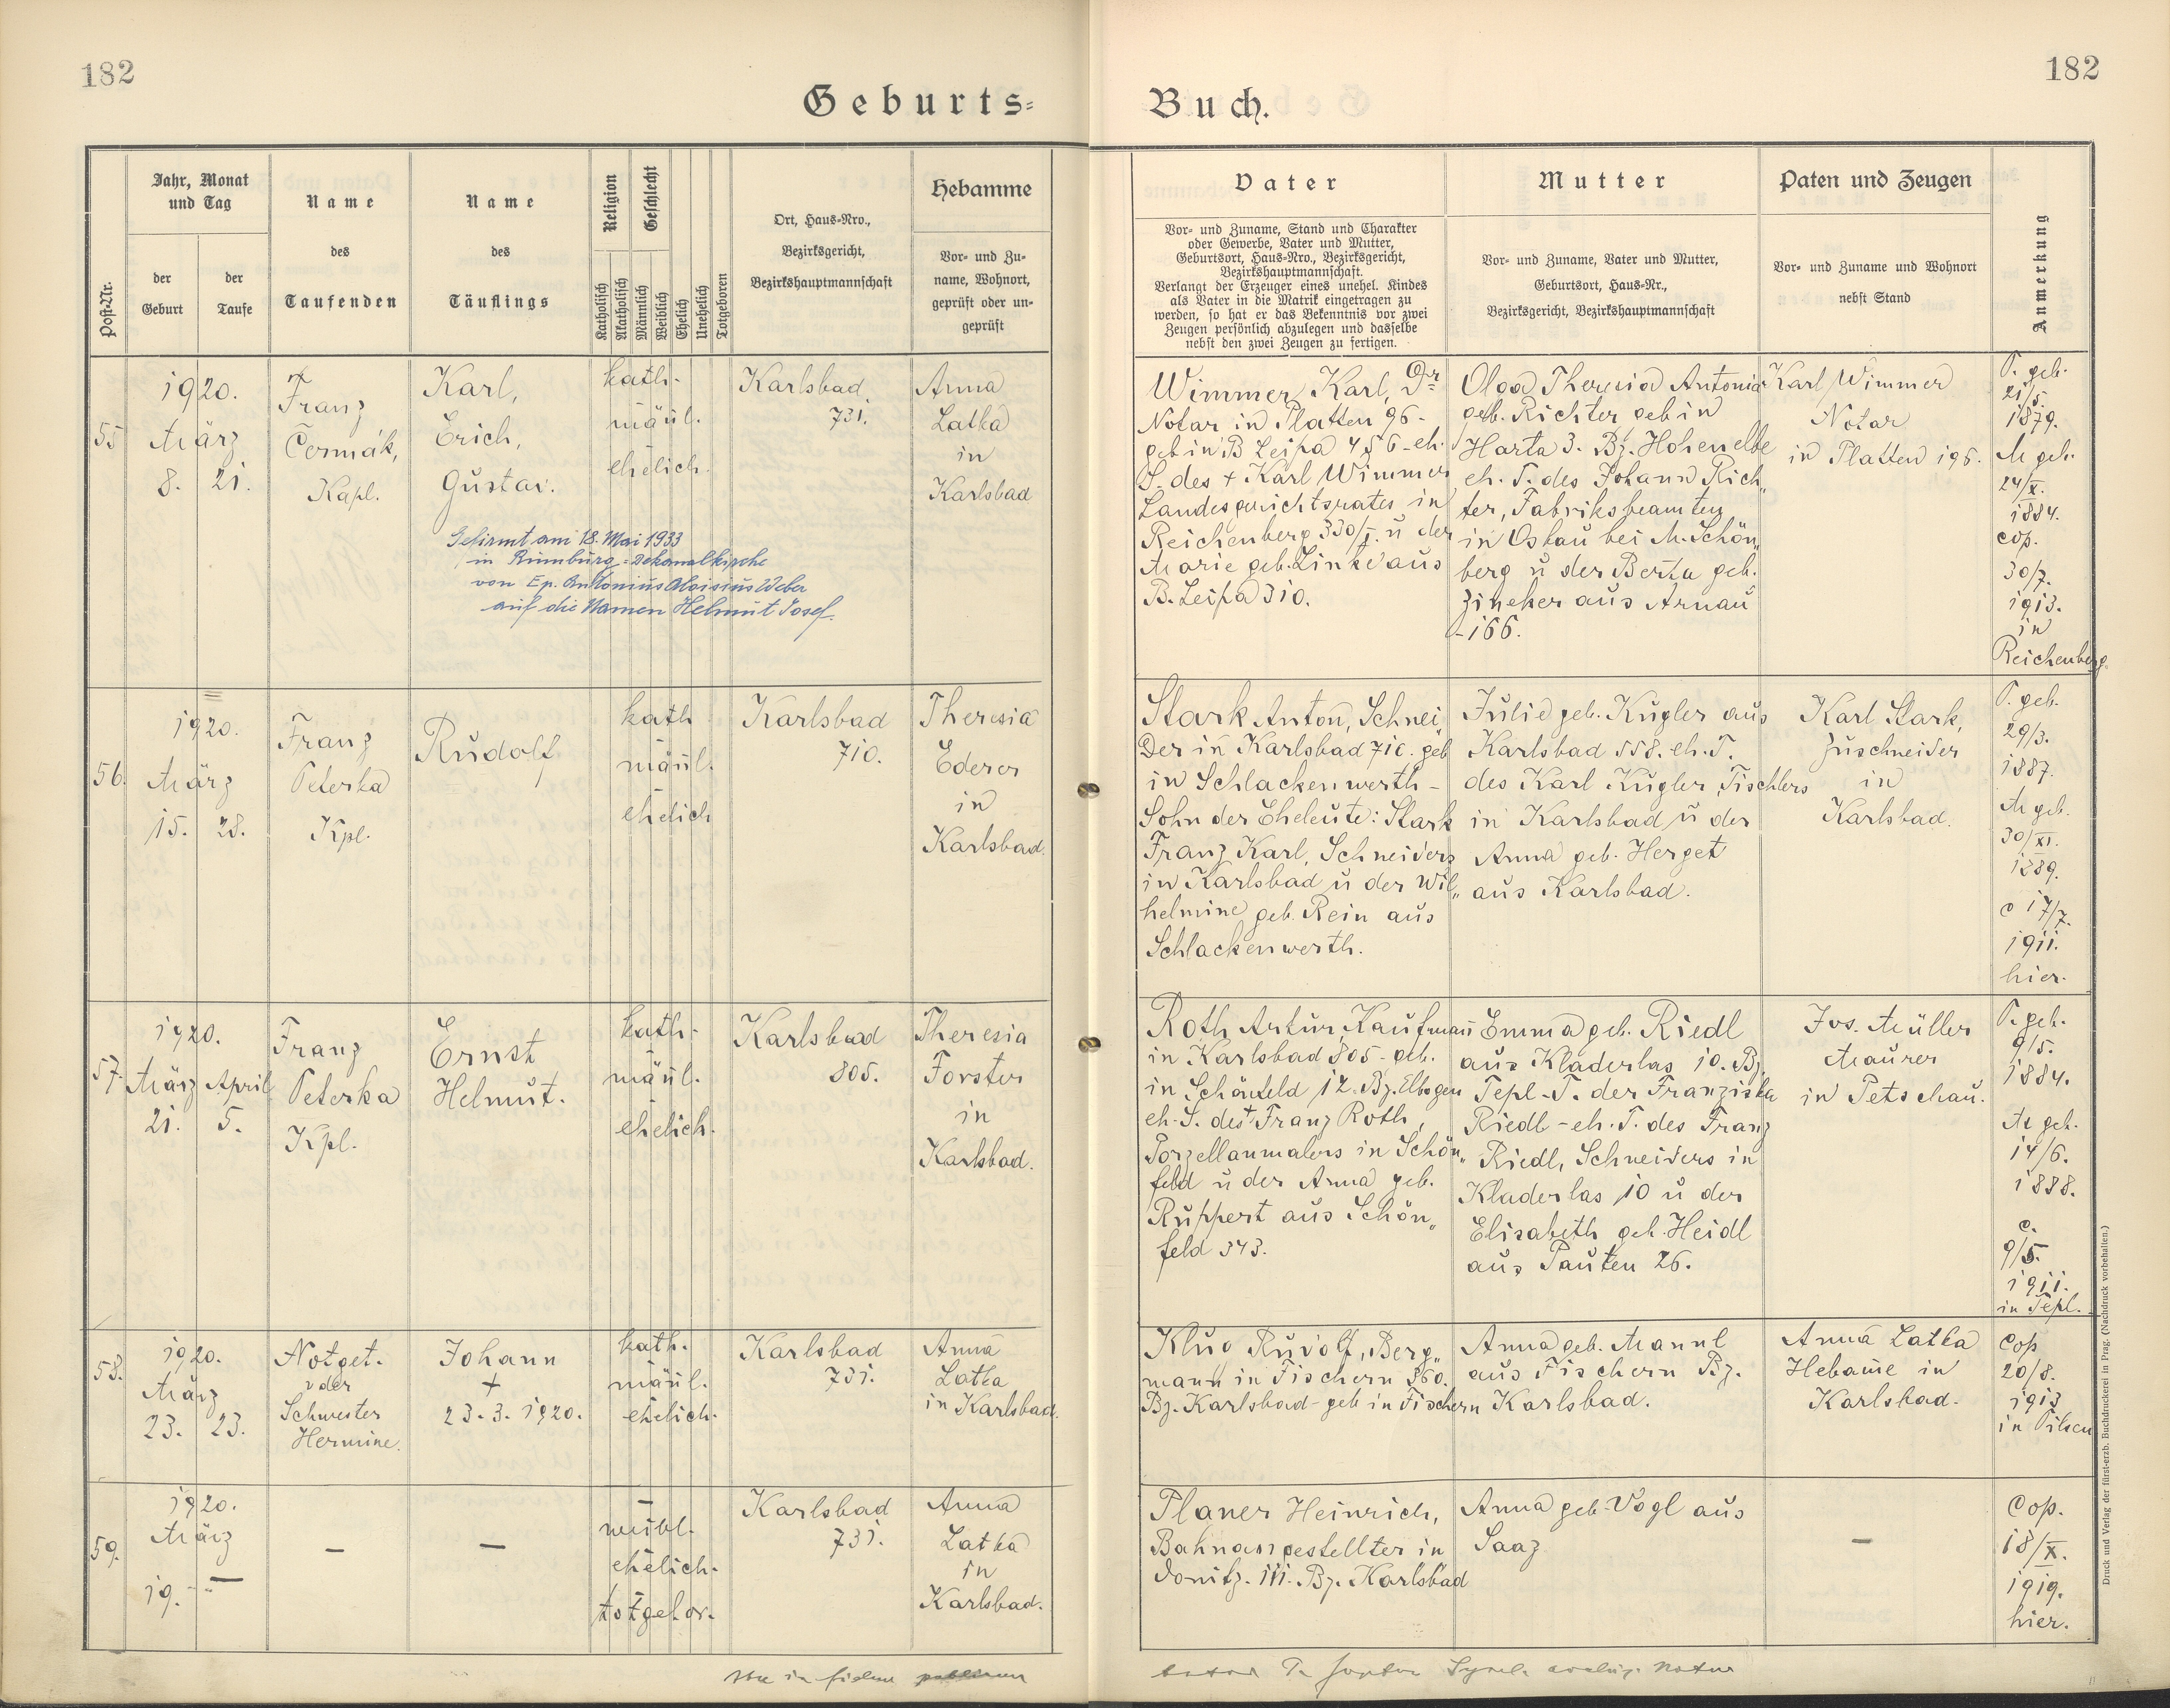 182
182
Geburts=
Buch.
Post-Nr.
Jahr, Monat
und Tag
der
Geburt
der
Taufe
Name
des
Taufenden
Name
des
Täuflings
Religion
Geschlecht
Katholisch
Akatholisch
Männlich
Weiblich
Ehelich
Unehelich
Totgeboren
Ort, Haus-Nro.,
Bezirksgericht,
Bezirkshauptmannschaft
Hebamme
Vor- und Zu-
name, Wohnort,
geprüft oder un-
geprüft
Vater
Vor- und Zuname, Stand und Charakter
oder Gewerbe, Vater und Mutter,
Geburtsort, Haus-Nro., Bezirksgericht,
Bezirkshauptmannschaft.
Verlangt der Erzeuger eines unehel. Kindes
als Vater in die Matrik eingetragen zu
werden, so hat er das Bekenntnis vor zwei
Zeugen persönlich abzulegen und dasselbe
nebst den zwei Zeugen zu fertigen.
Mutter
Vor- und Zuname, Vater und Mutter,
Geburtsort, Haus-Nr.,
Bezirksgericht, Bezirkshauptmannschaft
Paten und Zeugen
Vor- und Zuname und Wohnort
nebst Stand
Anmerkung
55
1920.
März
8. 21.
Franz
Čermák,
Kapl.
Karl,
Erich,
Gustav.
kath.
männl.
ehelich.
Karlsbad
731.
Anna
Latka
in
Karlsbad
Gefirmt am 18. Mai 1933
in Rumburg = Dekanalkirche
von Ep. Antonius Aloisius Weber
auf die Namen Helmut Josef.
Wimmer Karl, Dr
Notar in Platten 96-
geb in B Leipa 456-eh.
S. des + Karl Wimmer
Landesgerichtsrates in
Reichenberg 330/I. u der
Marie geb. Linke aus
B. Leipa 310.
Olga Theresia Antonia
geb. Richter geb in
Harta 3. Bz. Hohenelbe
eh. T. des Johann Rich„
ter, Fabriksbeamten
in Oskau bei M. Schön„
berg u der Berta geb.
Zineker aus Arnau
-166.
Karl Wimmer
Notar
in Platten 196.
V. geb.
21/5.
1879.
M geb.
24/X.
1884.
cop.
30/7.
1913.
in
Reichenberg.
56.
1920.
März
15. 28.
Franz
Peterka
Kpl.
Rudolf
kath
männl.
ehelich
Karlsbad
710.
Theresia
Ederer
in
Karlsbad.
Stark Anton, Schnei„
der in Karlsbad 710. geb
in Schlackenwerth-
Sohn der Eheleute: Stark
Franz Karl, Schneiders
in Karlsbad u der Wil„
helmine geb. Rein aus
Schlackenwerth.
Julie geb. Kugler aus
Karlsbad 558. eh. T.
des Karl Kugler, Tischlers
in Karlsbad u der
Anna geb. Herget
aus Karlsbad.
Karl Stark,
Zuschneider
in
Karlsbad.
V. geb.
29/3.
1887.
M geb.
30/XI.
1889.
c 17/7.
1911.
hier.
57.
1920.
März April
21. 5.
Franz
Peterka
Kpl.
Ernst
Helmut.
kath.
männl.
ehelich.
Karlsbad
805.
Theresia
Forster
in
Karlsbad.
Roth Artur, Kaufmann
in Karlsbad 805- geb.
in Schönfeld 12. Bz. Elbogen
eh. S. des + Franz Roth,
Porzellanmalers in Schön„
feld u der Anna geb.
Ruppert aus Schön„
feld 343.
Emma geb. Riedl
aus Kladerlas 10. Bz.
Tepl-T. der Franziska
Riedl-eh. T. des Franz
Riedl, Schneiders in
Kladerlas 10 u der
Elisabeth geb. Heidl
aus Pauten 26.
Jos. Müller
Maurer
in Petschau.
V. geb.
9/5.
1884.
M geb.
14/6.
1888.
c.
9/5.
1911.
in Tepl.
58.
1920.
März
23. 23.
Notget.
von der
Schwester
Hermine.
Johann
+
23. 3. 1920.
kath.
männl.
ehelich.
Karlsbad
731.
Anna
Latka
in Karlsbad.
Klug Rudolf, Berg„
mann in Fischern 360.
Bz. Karlsbad- geb in Fischern
Anna geb. Mannl
aus Fischern Bz.
Karlsbad.
Anna Latka
Hebame in
Karlsbad.
cop
20/8.
1913
in Pilsen
59.
1920.
März
19. —
—
—
—
weibl.
ehelich.
totgebor.
Karlsbad
731.
Anna
Latka
in
Karlsbad.
Planer Heinrich,
Bahnangestellter in
Donitz. 111. Bz. Karlsbad
Anna geb. Vogl aus
Saaz
—
Cop.
18/X.
1919.
hier.
Druck und Verlag der fürst-erzb. Buchdruckerei in Prag. (Nachdruck vorbehalten.)